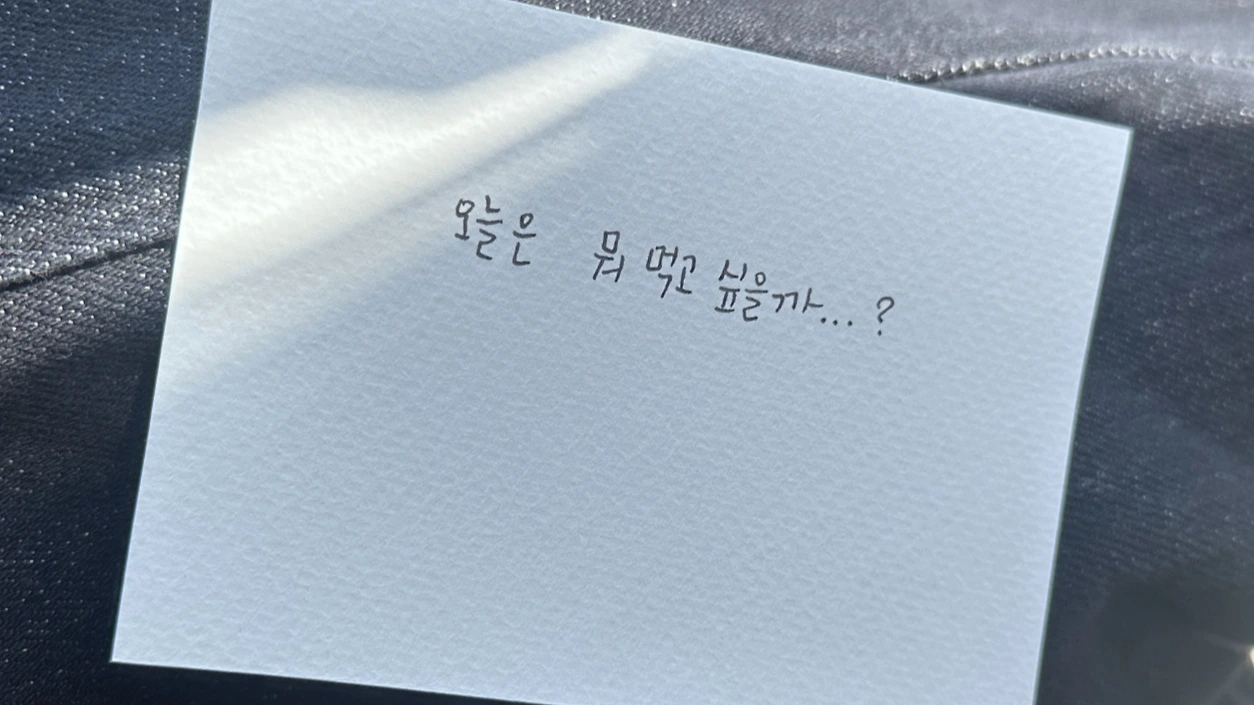 오늘은 뭐 먹고 싶을까...?